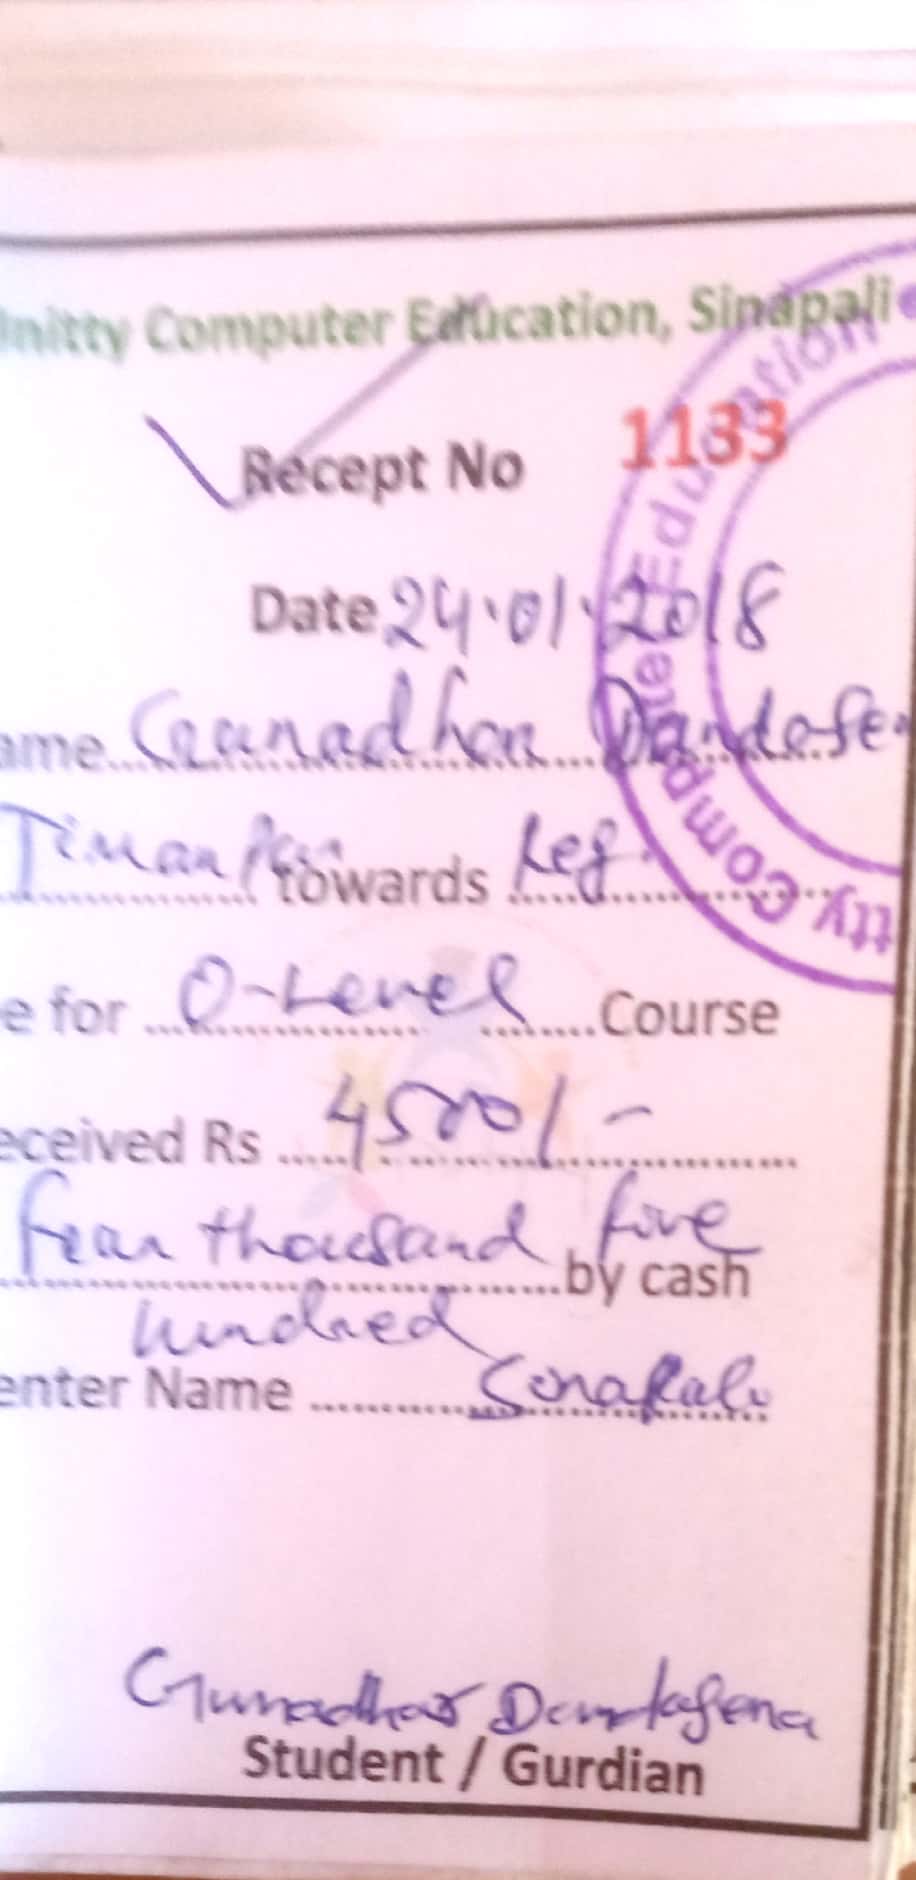 Unitty Computer Education, Sinapali
Recept No 1133
Date 24.01.2018
ame Gunadhar Dandasen
Timanpur towards Reg.
e for O-Level Course
eceived Rs 4500/-
Four thousand five by cash
hundred
enter Name Sinapali
Gunadhar Dandasena
Student / Gurdian
tty Computer Education